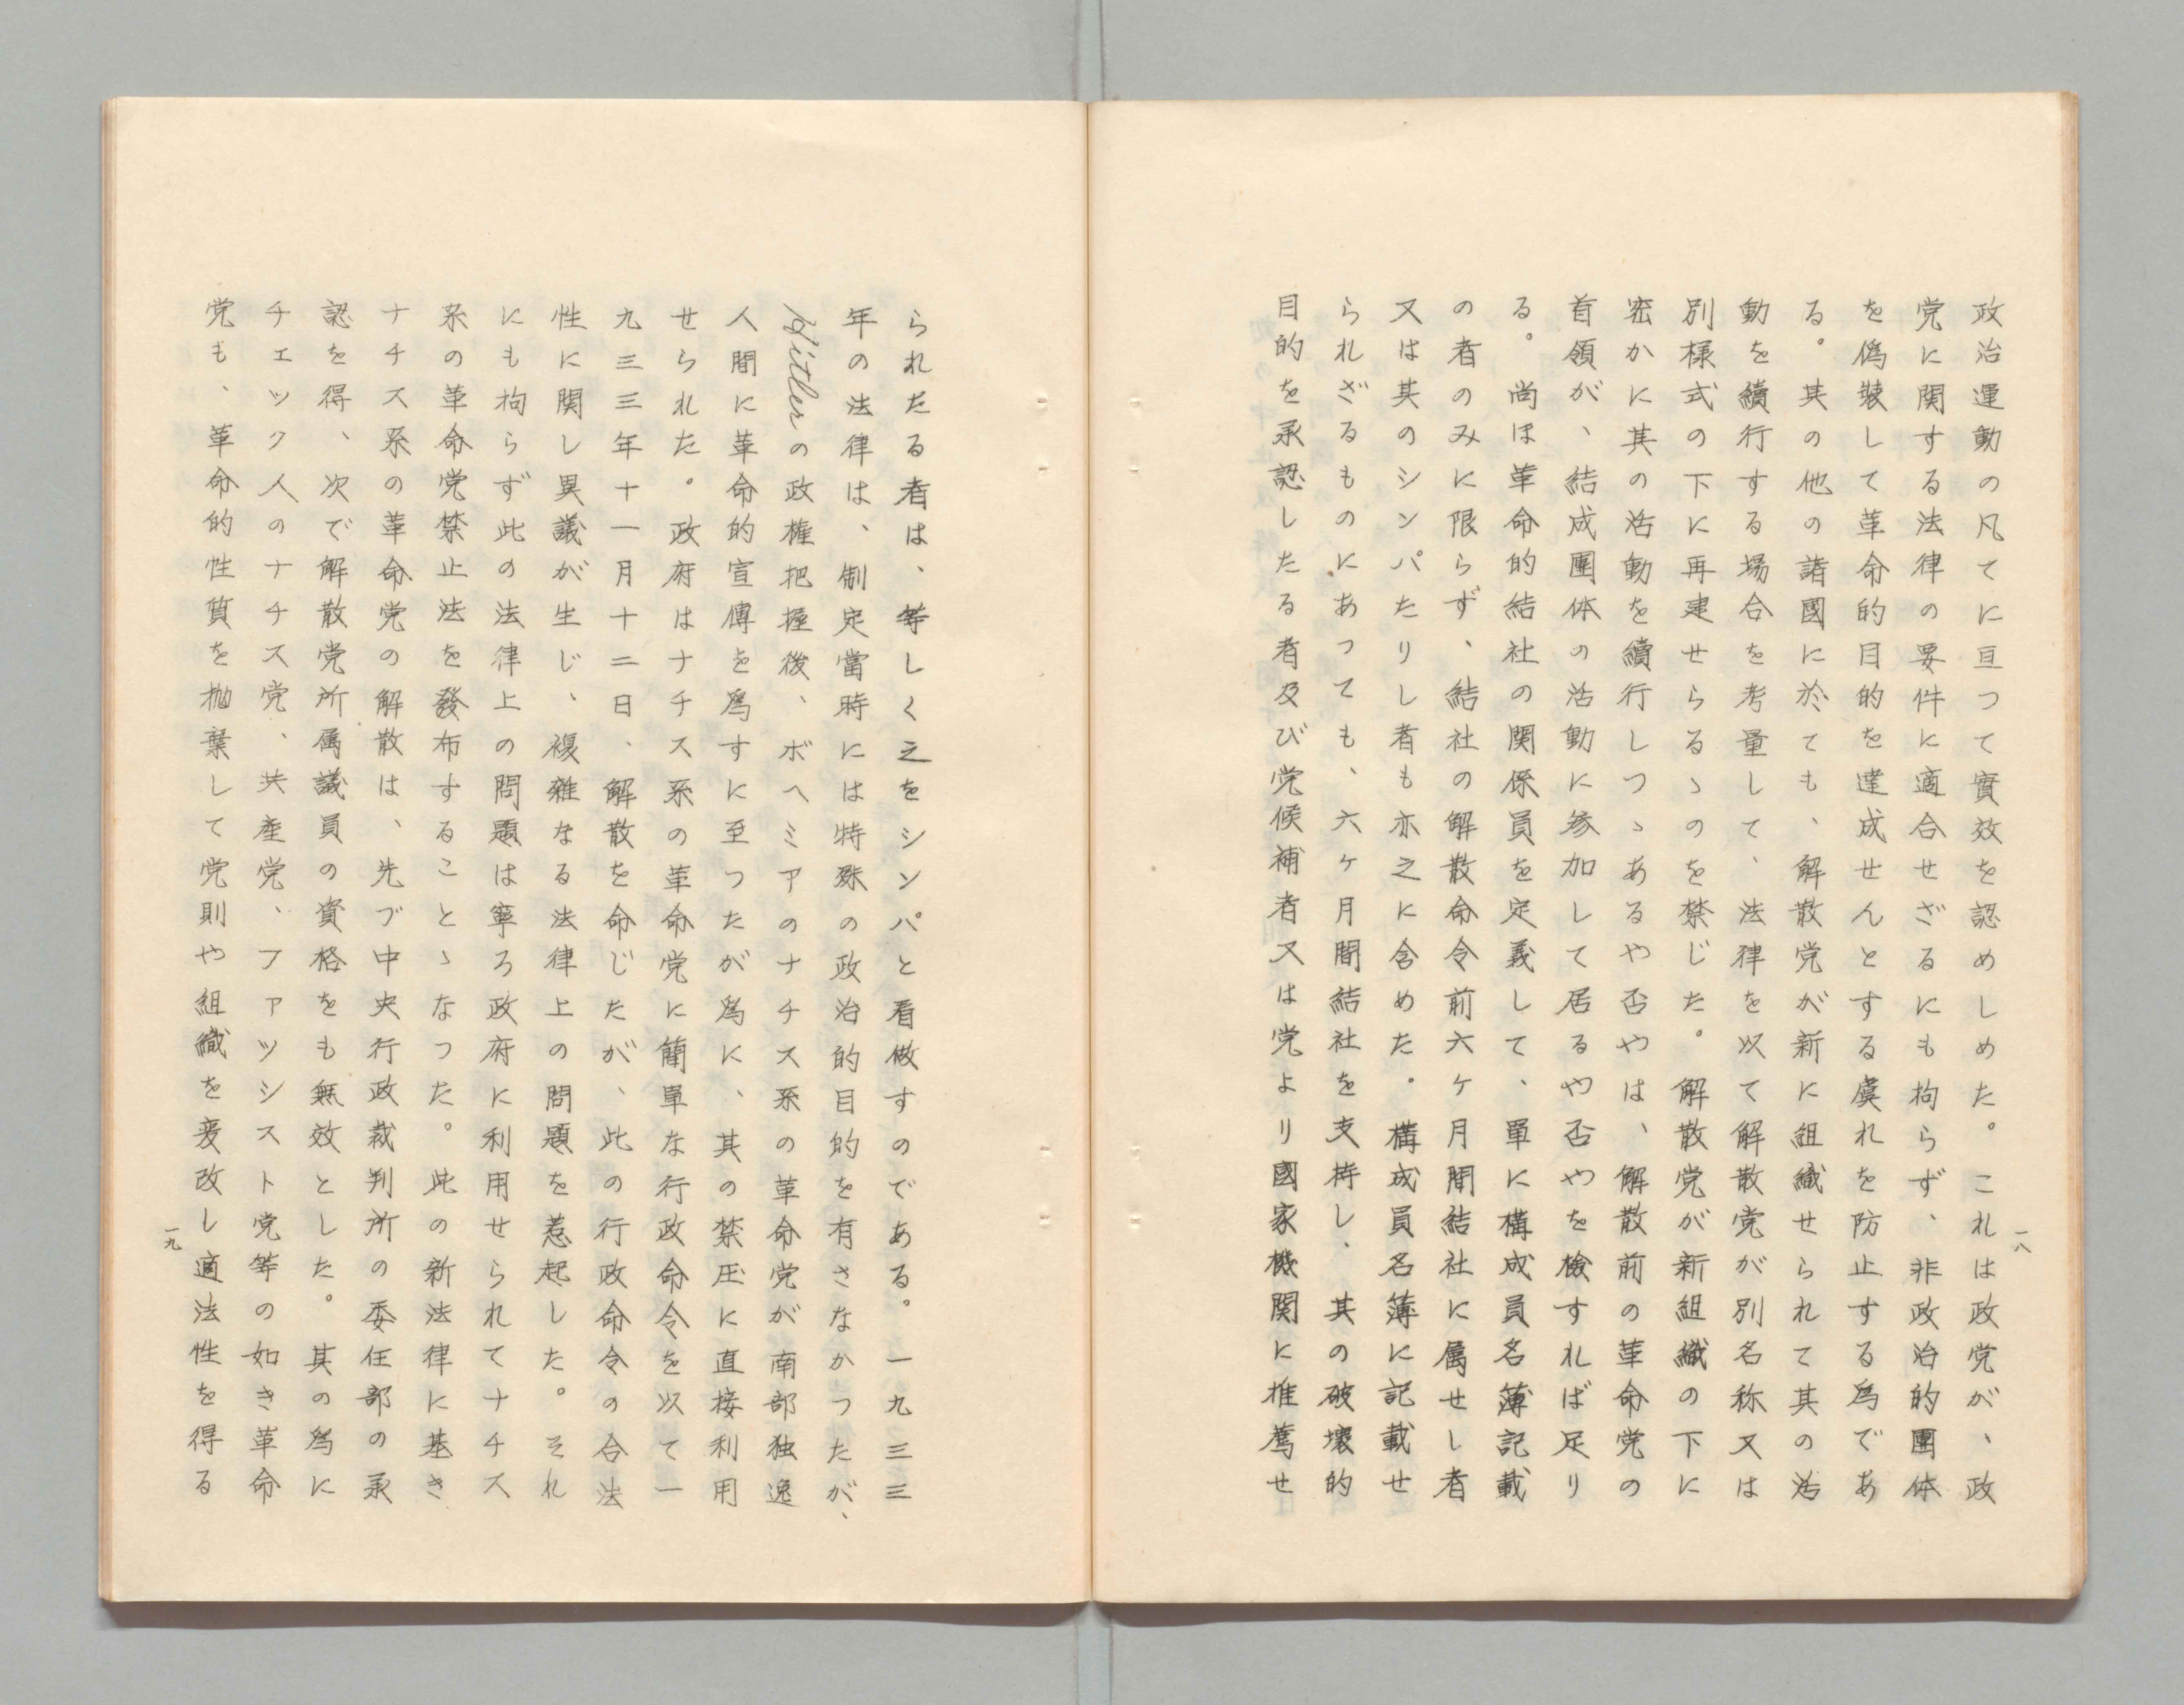 政治運動の凡てに亘つて實效を認めしめた。これは政党が、政
党に関する法律の要件に適合せざるにも拘らず、非政治的團体
を偽装して革命的目的を達成せんとする虞れを防止する為であ
る。其の他の諸國に於ても、解散党が新に組織せられて其の活
動を續行する場合を考量して、法律を以て解散党が別名称又は
別様式の下に再建せらるゝのを禁じた。解散党が新組織の下に
密かに其の活動を續行しつゝあるや否やは、解散前の革命党の
首領が、結成團体の活動に参加して居るや否やを檢すれば足り
る。尚ほ革命的結社の関係員を定義して、單に構成員名簿記載
の者のみに限らず、結社の解散命令前六ヶ月間結社に属せし者
又は其のシンパたりし者も亦之に含めた。構成員名簿に記載せ
られざるものにあつても、六ヶ月間結社を支持し、其の破壞的
目的を承認したる者及び党候補者又は党より國家機関に推薦せ
一八
られたる者は、等しく之をシンパと看做すのである。一九三三
年の法律は、制定當時には特殊の政治的目的を有さなかつたが、
Hitlerの政權把握後、ボヘミアのナチス系の革命党が南部独逸
人間に革命的宣傳を為すに至つたが為に、其の禁圧に直接利用
せられた。政府はナチス系の革命党に簡單な行政命令を以て一
九三三年十一月十二日、解散を命じたが、此の行政命令の合法
性に関し異議が生じ、複雜なる法律上の問題を惹起した。それ
にも拘らず此の法律上の問題は寧ろ政府に利用せられてナチス
系の革命党禁止法を發布することゝなつた。此の新法律に基き
ナチス系の革命党の解散は、先づ中央行政裁判所の委任部の承
認を得、次で解散党所属議員の資格をも無效とした。其の為に
チェック人のナチス党、共産党、ファッシスト党等の如き革命
党も、革命的性質を抛棄して党則や組織を変改し適法性を得る
一九